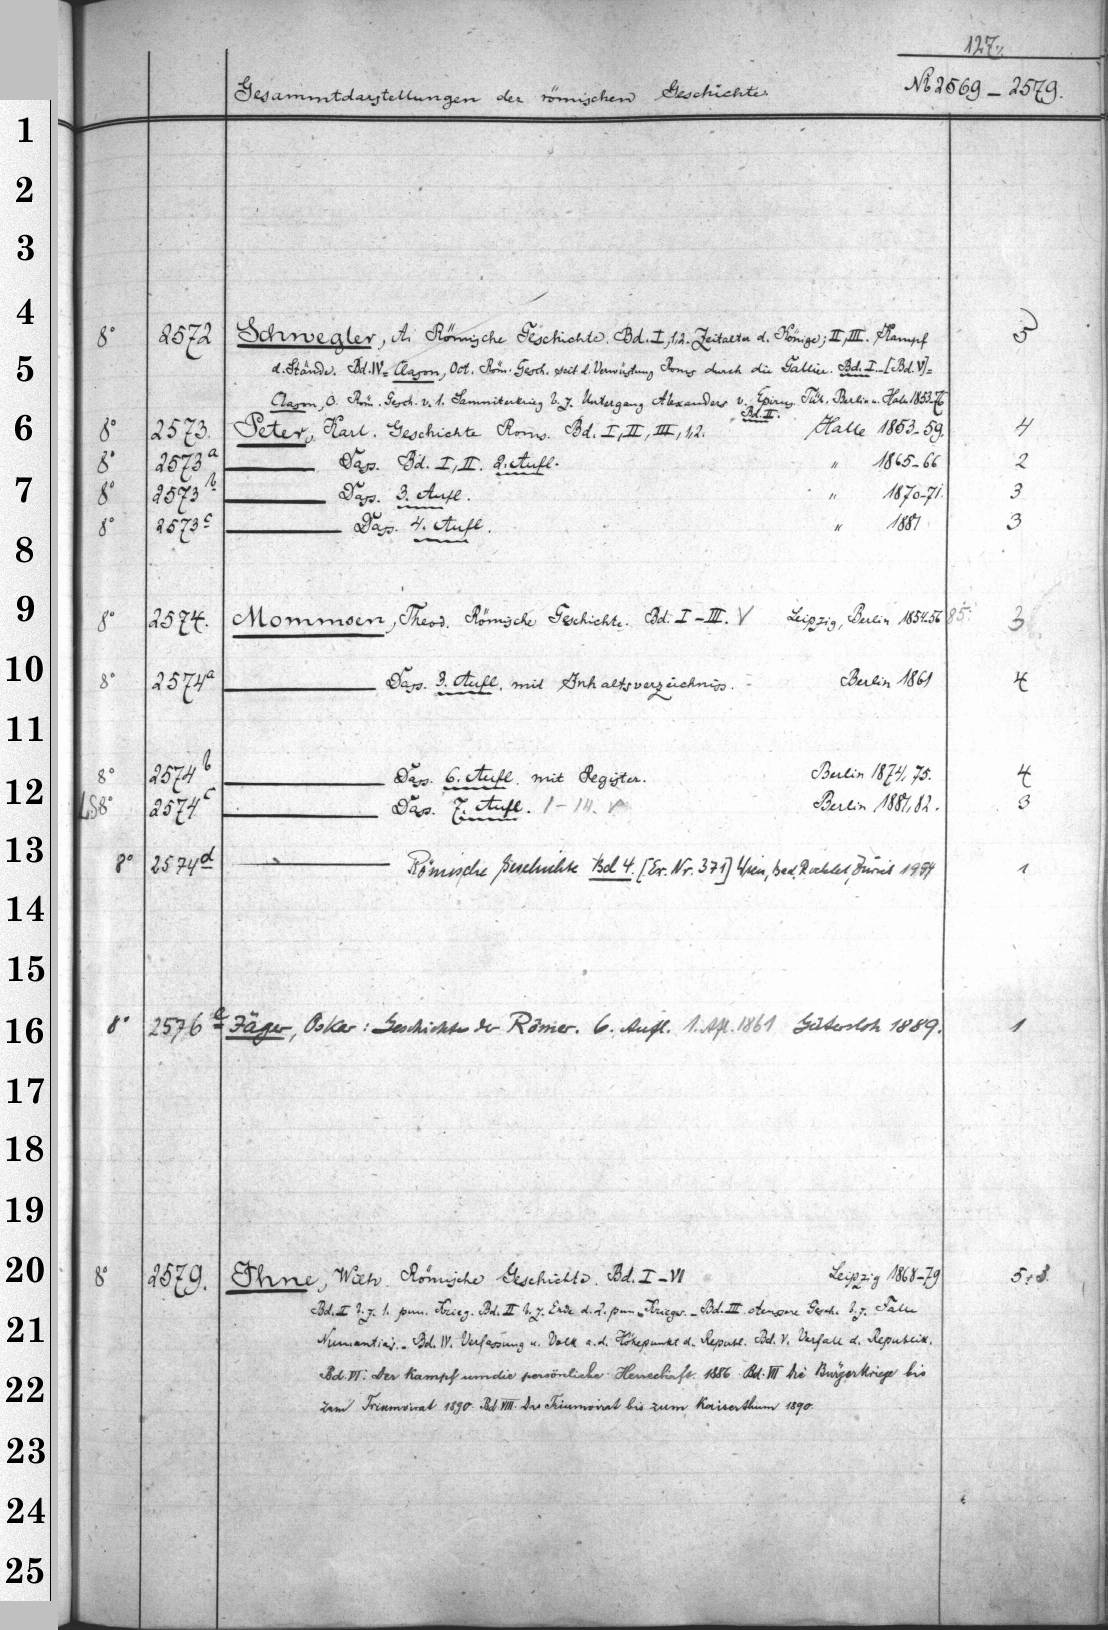 127.
Gesammtdarstellungen der römischen Geschichte.
№ 2569 - 2579.
8° 2572 Schwegler, A. Römische Geschichte. Bd. I,1,2. Zeitalter d. Könige; II, III. Kampf 5
d. Stände. Bd. IV = Clason, Oct. Röm. Gesch. seit d. Verwüstung Roms durch die Gallier. Bd. I. - [Bd. V] =
Clason, O. Röm. Gesch. v. 1. Samniterkrieg b. z. Untergang Alexanders v. Epirus. Tüb. Berlin u. Halle 1853-76
Bd. II.
8° 2573. Peter, Karl. Geschichte Roms. Bd. I, II, III, 1,2. Halle 1853-59. 4
8° 2573a Dass. Bd. I, II. 2. Aufl. " 1865-66 2
8° 2573b Dass. 3. Aufl. " 1870-71. 3
8° 2573c Dass. 4. Aufl. " 1881 3
8° 2574. Mommsen, Theod. Römische Geschichte. Bd. I - III. V Leipzig, Berlin 1854-56 85. 3
8° 2574a Dass. 3. Aufl. mit Inhaltsverzeichniss. Berlin 1861 4
8° 2574b Dass. 6. Aufl. mit Register. Berlin 1874, 75. 4
LS 8° 2574c Dass. 7. Aufl. I - III. V Berlin 1881, 82. 3
8° 2574d Römische Geschichte Bd 4. [Er. Nr. 371] Wien, Zürich 1954 1
8° 2576a Jäger, Oskar: Geschichte der Römer. 6. Aufl. 1. Afl. 1861 Gütersloh 1889. 1
8° 2579. Ihne, Wilh. Römische Geschichte. Bd. I - VI Leipzig 1868-79 5+3.
Bd. II b. z. 1. pun. Krieg. Bd. II b. z. Ende d. 2. pun. Krieges. - Bd. III Aeussere Gesch. b. z. Falle
Numantias. - Bd. IV. Verfassung u. Volk a. d. Höhepunkt d. Republ. Bd. V. Verfall d. Republik.
Bd. VI. Der Kampf um die persönliche Herrschaft. 1886 Bd. VII Die Bürgerkriege bis
zum Triumvirat 1890. Bd. VIII. Das Triumvirat bis zum Kaiserthum 1890.
1
2
3
4
5
6
7
8
9
10
11
12
13
14
15
16
17
18
19
20
21
22
23
24
25